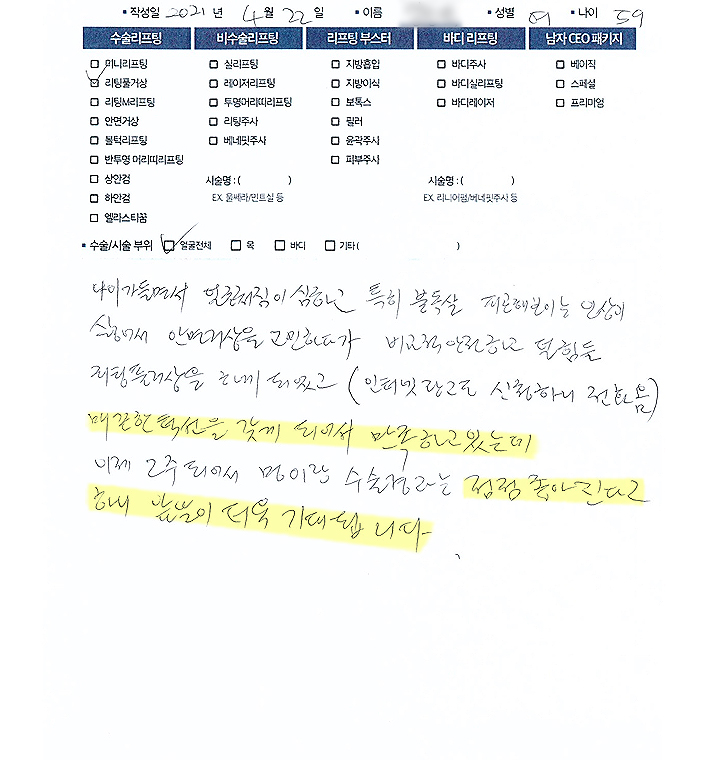 ▪ 작성일 2021 년 4 월 22 일 ▪ 이름 ▪ 성별 여 ▪ 나이 59
수술리프팅 비수술리프팅 리프팅 부스터 바디 리프팅 남자 CEO 패키지
미니리프팅 실리프팅 지방흡입 바디주사 베이직
리팅풀거상 레이저리프팅 지방이식 바디실리프팅 스페셜
리팅M리프팅 투명머리띠리프팅 보톡스 바디레이저 프리미엄
안면거상 리팅주사 필러
볼턱리프팅 베네핏주사 윤곽주사
반투명 머리띠리프팅 피부주사
상안검 시술명 : ( ) 시술명 : ( )
하안검 EX. 울쎄라/민트실 등 EX. 리니어펌/베네핏주사 등
엘라스티꿈
▪ 수술/시술 부위 얼굴전체 목 바디 기타 ( )
나이가들면서 얼굴처짐이 심하고 특히 불독살 피곤해보이는 인상이
심해서 안면거상을 고민하다가 비교적안전하고 덜힘든
리팅풀거상을 하게 되었고 (인터넷 광고로 신청하니 전화옴)
매끈한턱선을 갖게 되어서 만족하고있는데
이제 2주 되어서 멍이랑 수술경과는 점점 좋아진다고
하니 앞날이 더욱 기대됩니다.